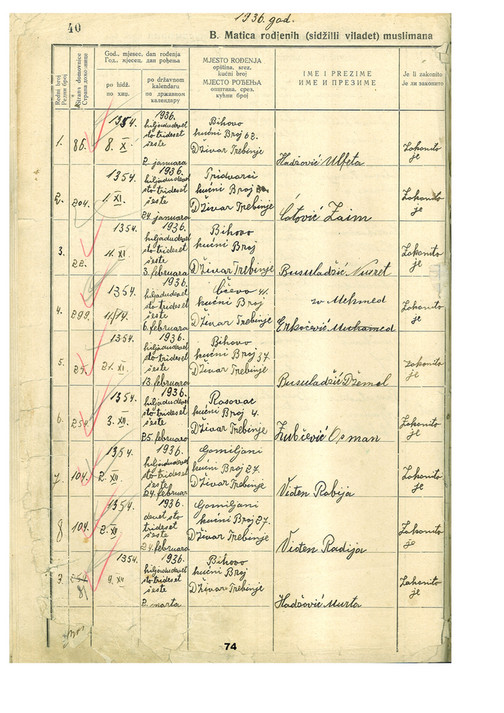 1936. god.
40
B. Matica rodjenih (sidžilli viladet) muslimana
Redni broj
Редни број
Strana domovnice
Страна домовнице
God., mjesec, dan rođenja
Год., мјесец, дан рођења
po hidž.
по хиџ.
po državnom
kalendaru
по државном
календару
MJESTO ROĐENJA
opština, srez,
kućni broj
МЈЕСТО РОЂЕЊА
општина, срез,
кућни број
IME I PREZIME
ИМЕ И ПРЕЗИМЕ
Je li zakonito
Је ли законито
1.
86.
1354
8. X.
1936.
hiljadudevet
sto trideset
šeste
2. januara
Bihovo
kućni Broj 68.
Dživar Trebinje
Hadžović Ulfeta
Zakonito
je
2.
204.
1354
1. XI.
1936.
hiljadudevet
sto trideset
šeste
24. januara
Pridvorci
kućni Broj
Dživar Trebinje
Ćatović Zaim
Zakonito
je
3.
22.
1354.
11. XI.
1936.
hiljadudevet
sto trideset
šeste
3. februara
Bihovo
kućni Broj
Dživar Trebinje
Busuladžić Nusret
Zakonito
je
4.
299.
1354.
1936.
hiljadudevet
sto trideset
šeste
6. februara
41.
kućni Broj
Dživar Trebinje
Mehmed
Muhamed
Zakonito
je
5.
1354.
21. XI.
1936.
hiljadudevet
sto trideset
šeste
13. februara
Bihovo
kućni Broj 37.
Dživar Trebinje
Busuladžić Džemal
Zakonito
je
6.
254.
1354
3. XII.
1936.
hiljadudevet
sto trideset
šeste
25. februara
Rasovac
kućni Broj 4.
Dživar Trebinje
Zubčević Osman
Zakonito
je
7.
104.
1354
2. XII.
1936.
hiljadudevet
sto trideset
šeste
24. februar
Gomiljani
kućni Broj 27.
Dživar Trebinje
Višten Rabija
Zakonito
je
8
104.
1354.
2. XII.
1936.
devet sto
trideset
šeste
24. februara
Gomiljani
kućni Broj 27.
Dživar Trebinje
Višten Radija
Zakonito
je
9.
81
1354
9. XII.
1936.
hiljadudevet
sto trideset
šeste
2. marta
Bihovo
kućni Broj
Dživar Trebinje
Hadžović Murta
Zakonito
je
74